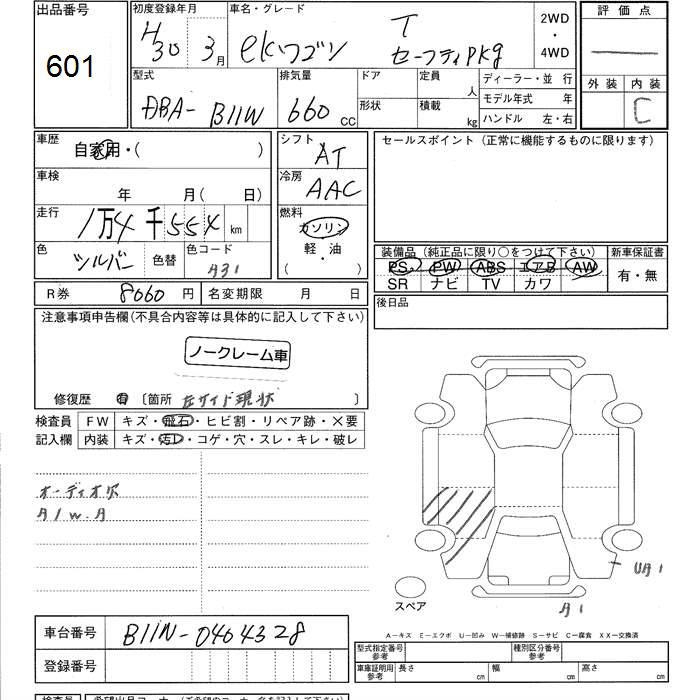 出品番号
601
初度登録年月
H30 3月
車名・グレード
ekワゴン T
セーフティPKg
2WD
・
4WD
評価点
外装 内装
C
型式
DBA- B11W
排気量
660 CC
ドア
形状
定員
人
積載
kg
ディーラー・並行
モデル年式 年
ハンドル 左・右
車歴
自家用・( )
車検
年 月( 日)
走行
1万4千554 km
色
シルバー
色替
色コード
A31
シフト
AT
冷房
AAC
燃料
ガソリン
軽・油
( )
セールスポイント(正常に機能するものに限ります)
装備品(純正品に限り○をつけて下さい)
PS PW ABS エアB AW
SR ナビ TV カワ
新車保証書
有・無
R券 8060円
名変期限 月 日
後日品
注意事項申告欄(不具合内容等は具体的に記入して下さい)
ノークレーム車
修復歴 有 〔箇所 左サイド現状 〕
検査員
記入欄
FW キズ・飛石・ヒビ割・リペア跡・×要
内装 キズ・汚レ・コゲ・穴・スレ・キレ・破レ
オーディオ欠
A/W.A
UA1
A1
スペア
A-キズ E-エクボ U-凹み W-補修跡 S-サビ C-腐食 XX-交換済
車台番号 B11W-0404328
登録番号
型式指定番号
参考
種別区分番号
参考
車庫証明用
参考
長さ cm 幅 cm 高さ cm